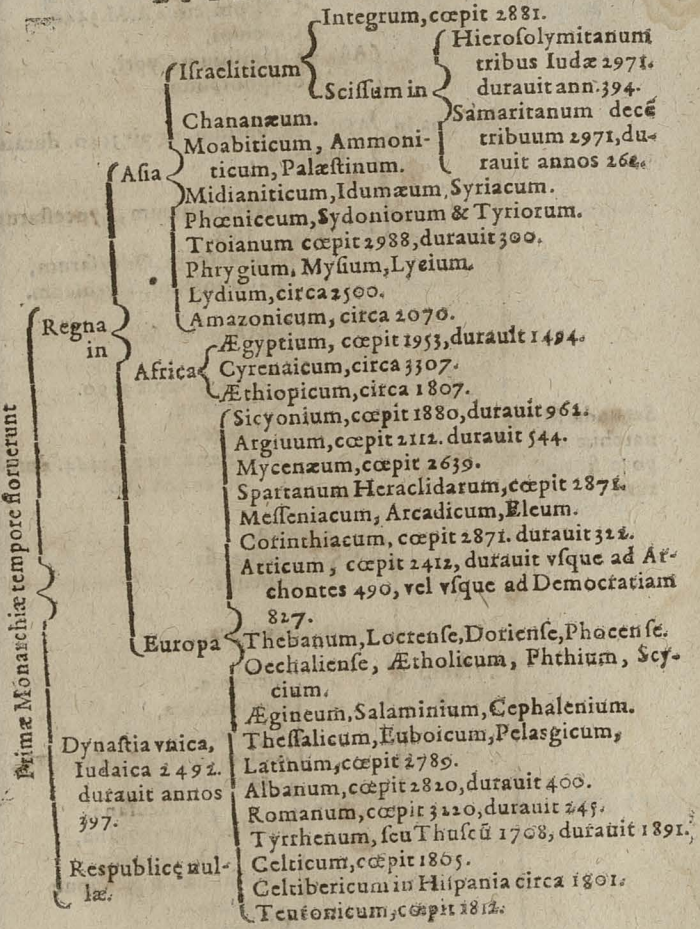 Primæ Monarchiæ tempore floruerunt
Regna
in
Asia
Israeliticum
Integrum, cœpit 2881.
Scissum in
Hierosolymitanum
tribus Iudæ 2971.
durauit ann. 394.
Samaritanum decē
tribuum 2971, du-
rauit annos 261.
Chananæum.
Moabiticum, Ammoni-
ticum, Palæstinum.
Midianiticum, Idumæum, Syriacum.
Phœniceum, Sydoniorum & Tyriorum.
Troianum cœpit 2988, durauit 300.
Phrygium, Mysium, Lycium.
Lydium, circa 2500.
Amazonicum, circa 2070.
Africa
Ægyptium, cœpit 1953, durauit 1494.
Cyrenaicum, circa 3307.
Æthiopicum, circa 1807.
Europa
Sicyonium, cœpit 1880, durauit 961.
Argiuum, cœpit 2112. durauit 544.
Mycenæum, cœpit 2639.
Spartanum Heraclidarum, cœpit 2871.
Messeniacum, Arcadicum, Eleum.
Corinthiacum, cœpit 2871. durauit 321.
Atticum, cœpit 2412, durauit vsque ad Ar-
chontes 490, vel vsque ad Democratiam
827.
Thebanum, Locrense, Doriense, Phocense.
Oechaliense, Ætholicum, Phthium, Scy-
cium.
Ægineum, Salaminium, Cephalenium.
Thessalicum, Euboicum, Pelasgicum,
Latinum, cœpit 2789.
Albanum, cœpit 2820, durauit 400.
Romanum, cœpit 3220, durauit 245.
Tyrrhenum, seu Thuscū 1708, durauit 1891.
Celticum, cœpit 1805.
Celtibericum in Hispania circa 1801.
Teutonicum, cœpit 1812.
Dynastia vnica,
Iudaica 2492.
durauit annos
397.
Respublicę nul-
læ.